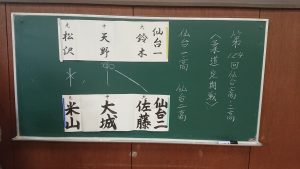 第124回仙台一高・二高
〈柔道定期戦〉
仙台一高 仙台二高
仙台一
鈴木
天野
松沢
仙台二
佐藤
大城
米山